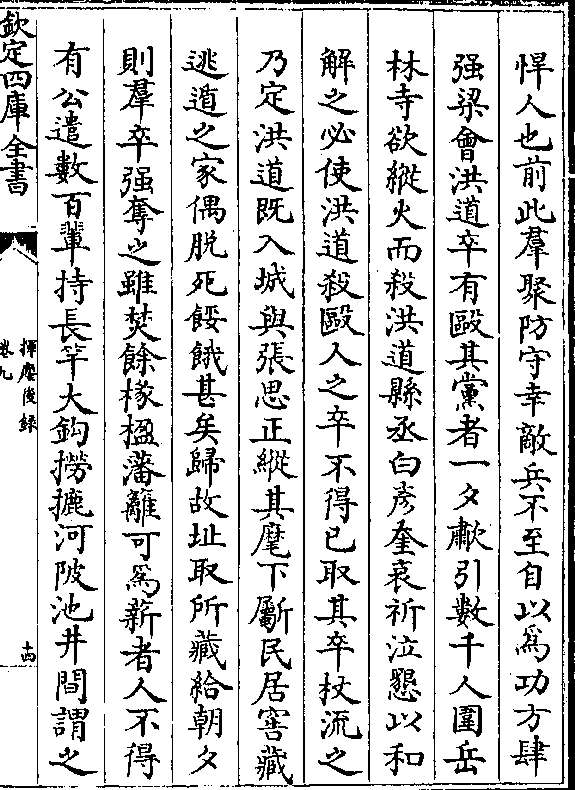 悍人也前此羣聚防守幸敵兵不至自以為功方肆
强梁會洪道卒有毆其黨者一夕歘引數千人圍岳
林寺欲縱火而殺洪道縣丞白彦奎哀祈泣懇以和
解之必使洪道殺毆人之卒不得已取其卒杖流之
乃定洪道既入城與張思正縱其麾下斸民居窖藏
逃遁之家偶脱死餒餓甚矣歸故址取所藏給朝夕
則羣卒强奪之雖焚餘椽楹藩離可為薪者人不得
有公遣數百輩持長竿大鈎撈摝河陂池井間謂之
欽定四庫全書
揮麈後錄
卷九
十四